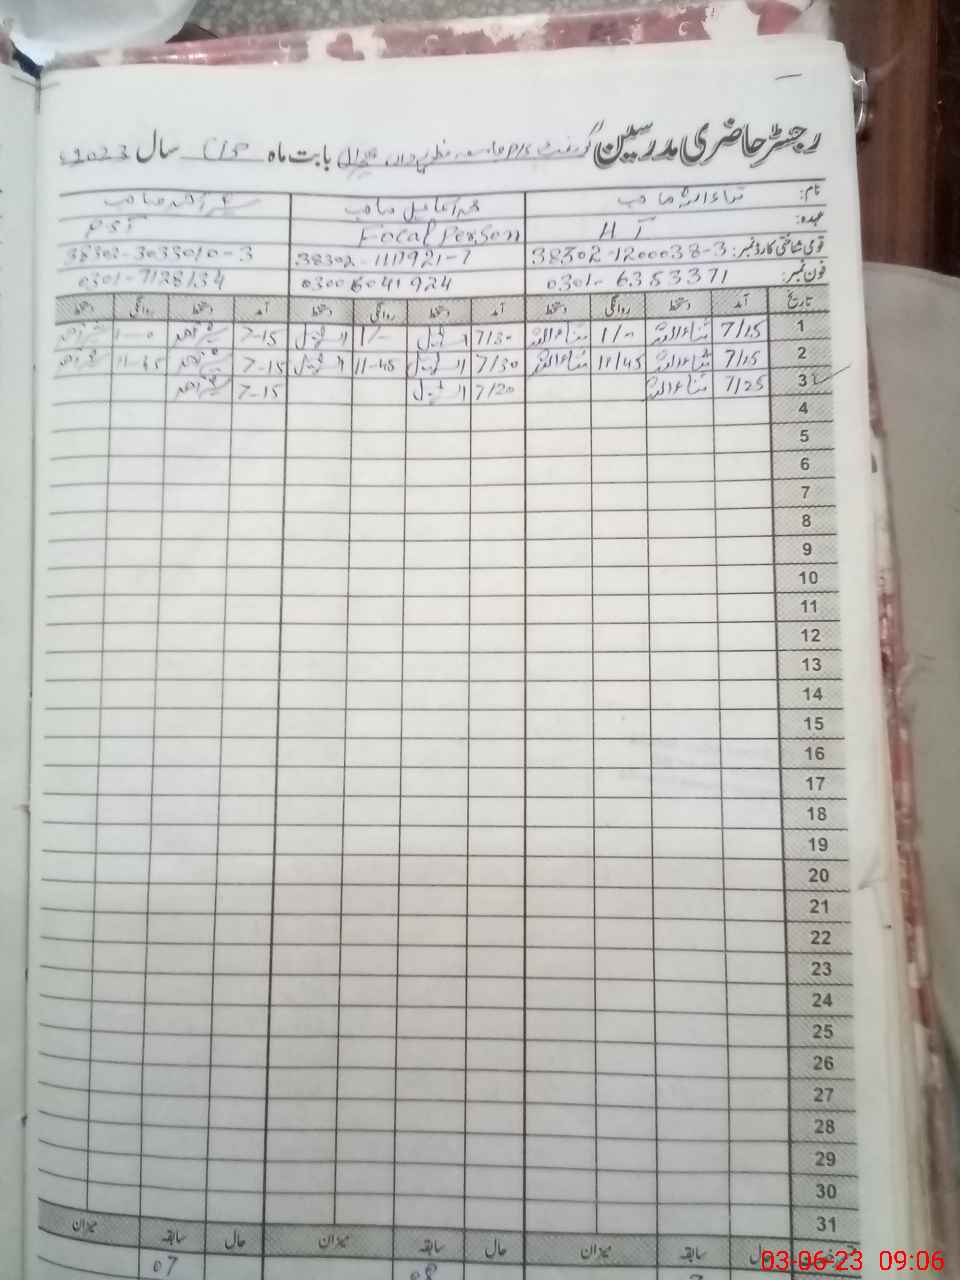 رجسٹر حاضری مدرسین گورنمنٹ p/s بابت ماہ جون سال 2023ء
نام: ثناء اللہ صاحب محمد اسماعیل صاحب
عہدہ: HT Focal Person PST
قومی شناختی کارڈ نمبر: 38302-1200038-3 38302-1111921-7 38302-3033010-3
فون نمبر: 0301-6353371 03006041924 0301-7128134
تاریخ آمد دستخط روانگی دستخط آمد دستخط روانگی دستخط آمد دستخط روانگی دستخط
1 7/15 ثناءاللہ 1/- ثناءاللہ 7/30 1/- 7-15
2 7/15 ثناءاللہ 11/45 ثناءاللہ 7/30 11-45 7-15 11-45
3 7/25 ثناءاللہ 7/20 7-15
4
5
6
7
8
9
10
11
12
13
14
15
16
17
18
19
20
21
22
23
24
25
26
27
28
29
30
31
حال سابقہ میزان حال سابقہ میزان حال سابقہ میزان
08 07
03-06-23 09:06